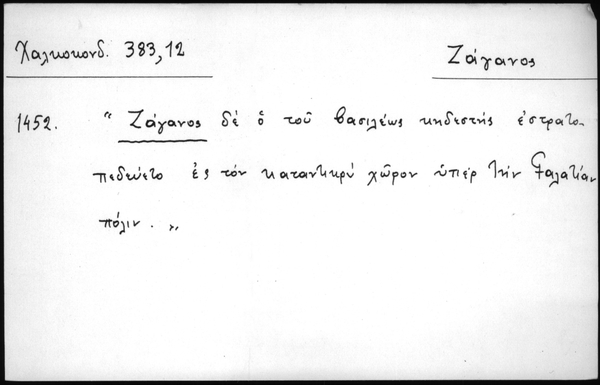 Χαλκοκονδ. 383,12
Ζάγανος
1452. " Ζάγανος δέ ὁ τοῦ βασιλέως κηδεστής ἐστρατο-
πεδεύετο ἐς τόν καταντικρύ χῶρον ὑπέρ τήν Γαλατίαν
πόλιν. "